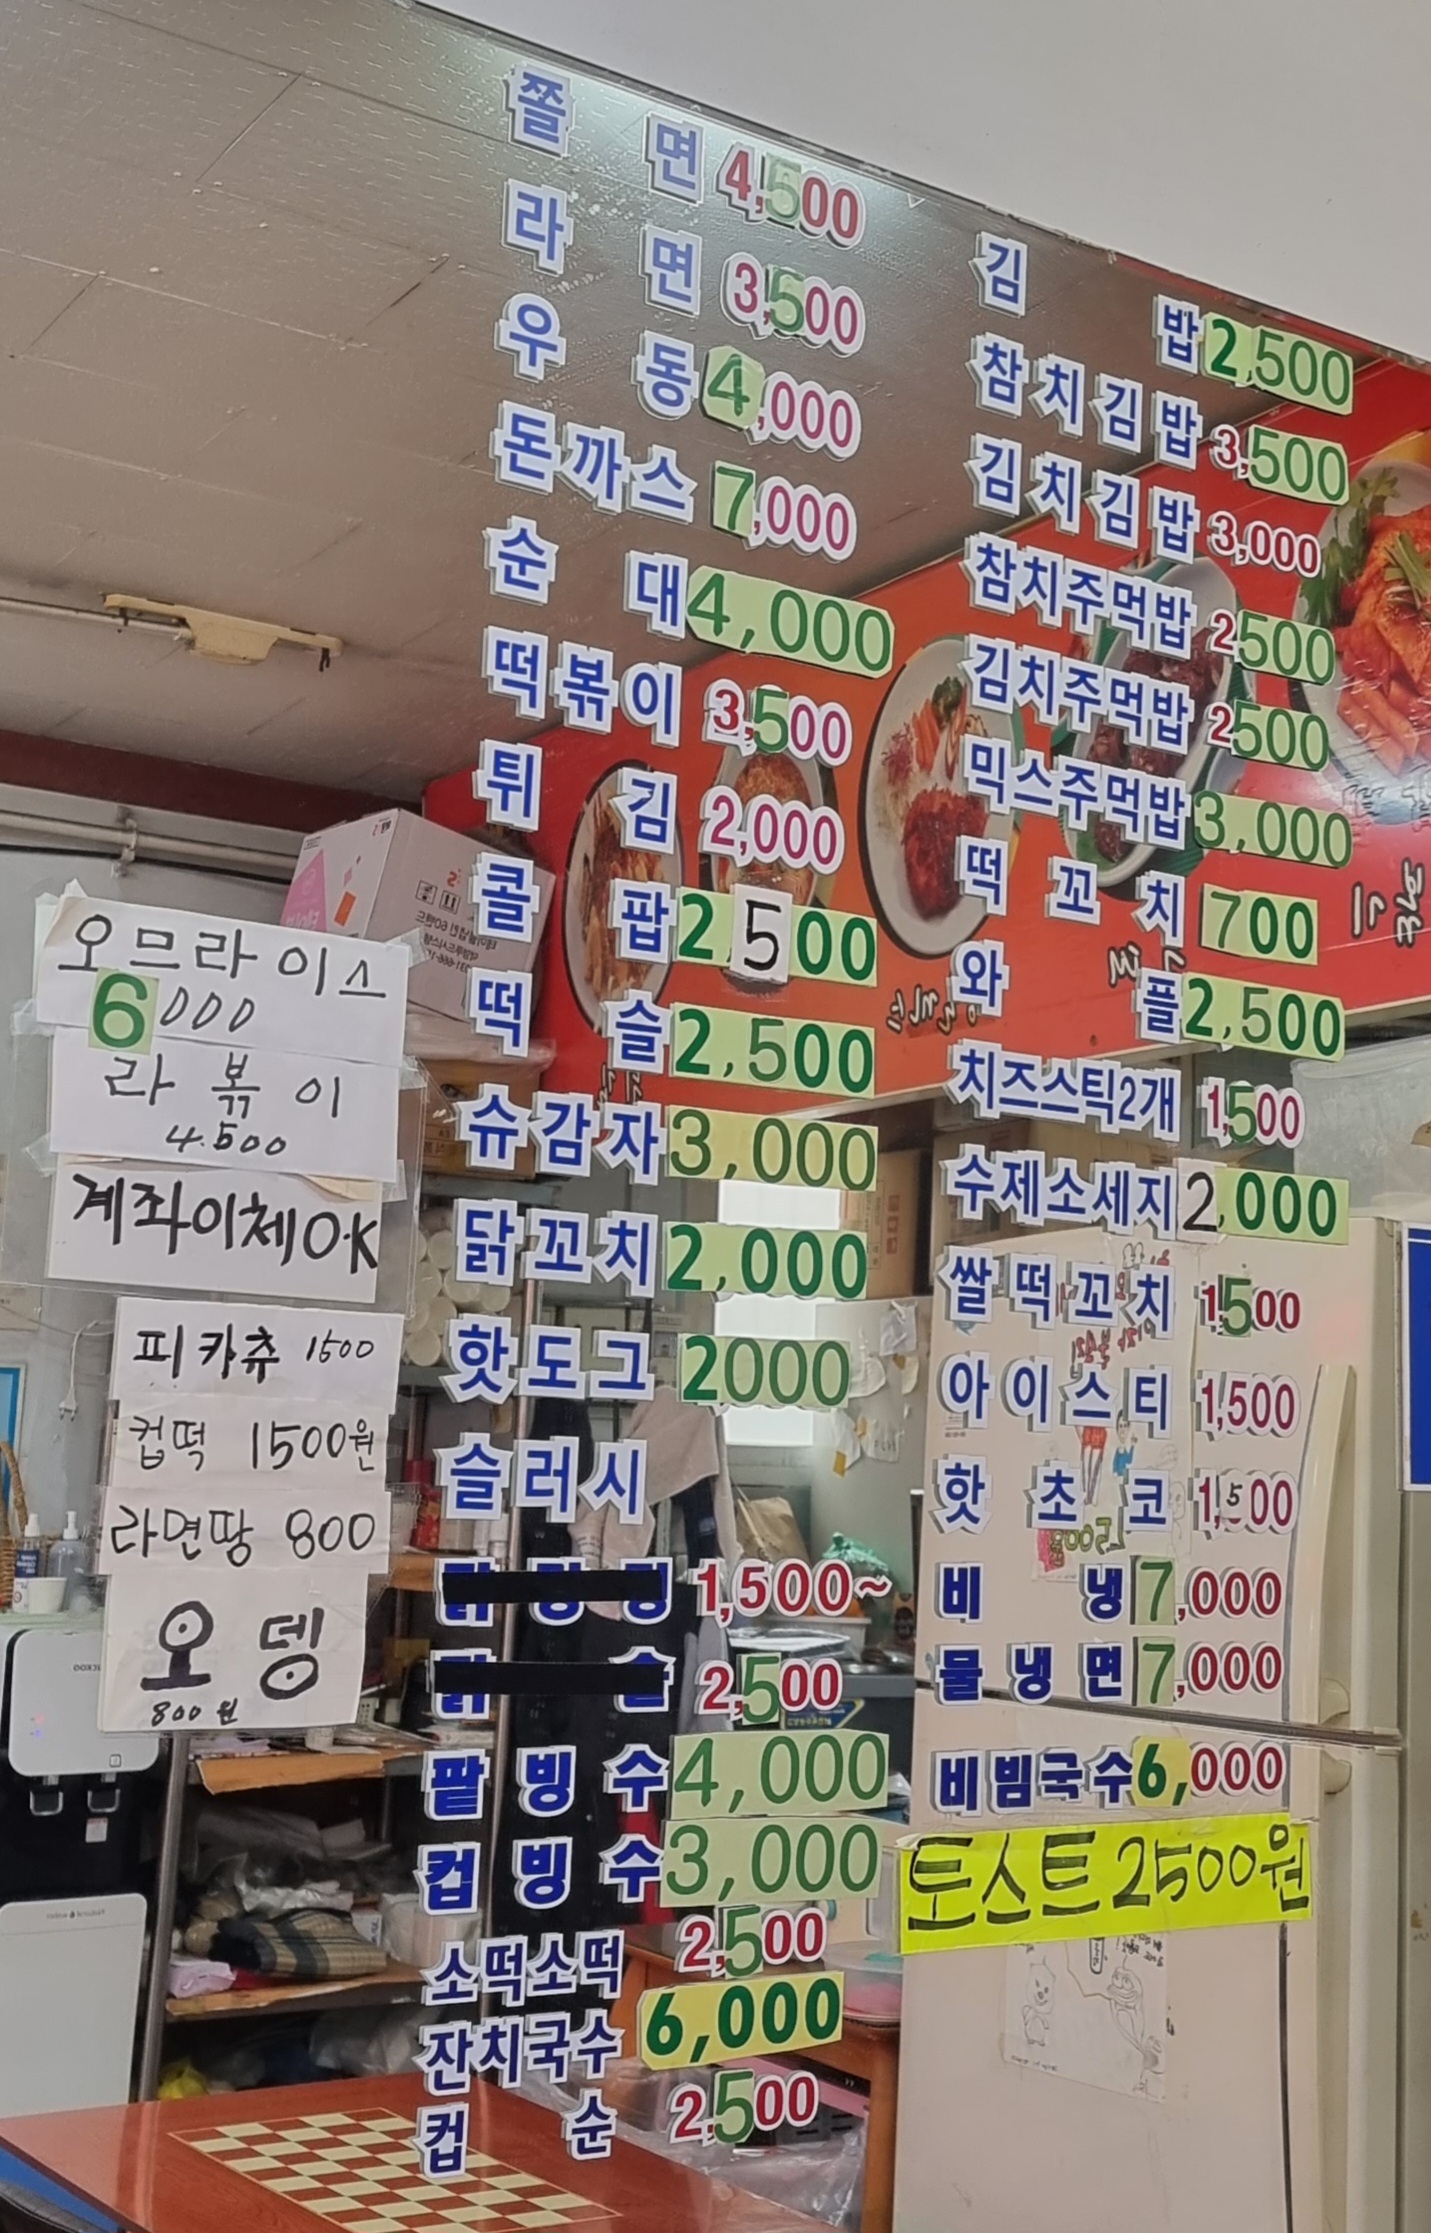 쫄면 4,500
라면 3,500
우동 4,000
돈까스 7,000
순대 4,000
떡볶이 3,500
튀김 2,000
콜팝 2,500
떡슬 2,500
슈감자 3,000
닭꼬치 2,000
핫도그 2000
슬러시
1,500~
2,500
팥빙수 4,000
컵빙수 3,000
소떡소떡 2,500
잔치국수 6,000
컵순 2,500
김밥 2,500
참치김밥 3,500
김치김밥 3,000
참치주먹밥 2500
김치주먹밥 2500
믹스주먹밥 3,000
떡꼬치 700
와플 2,500
치즈스틱2개 1,500
수제소세지 2,000
쌀떡꼬치 1,500
아이스티 1,500
핫초코 1,500
비냉 7,000
물냉면 7,000
비빔국수 6,000
토스트 2500원
오므라이스
6000
라볶이
4.500
계좌이체O.K
피카츄 1500
컵떡 1500원
라면땅 800
오뎅
800원